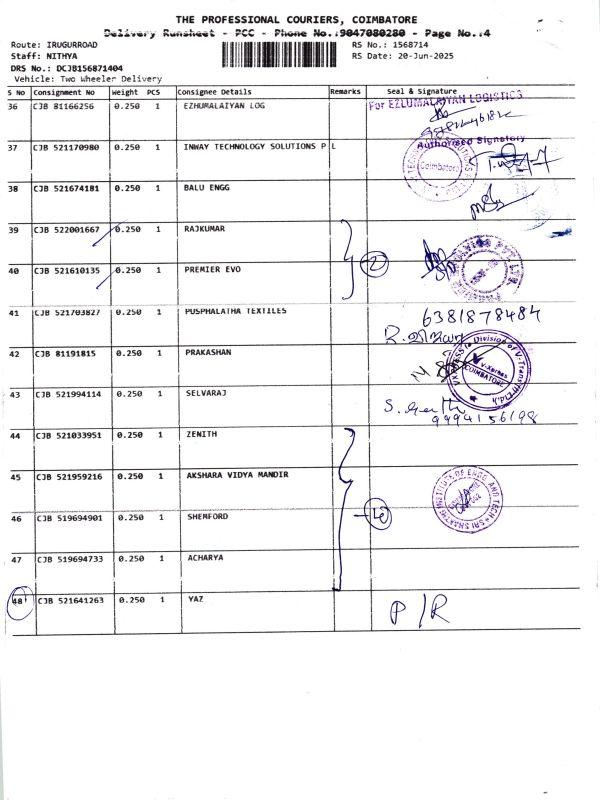 THE PROFESSIONAL COURIERS, COIMBATORE
Delivery Runsheet - PCC - Phone No.:9047080280 - Page No.:4
Route: IRUGURROAD
RS No.: 1568714
Staff: NITHYA
RS Date: 20-Jun-2025
DRS No.: DCJB156871404
Vehicle: Two Wheeler Delivery
S No Consignment No Weight PCS Consignee Details Remarks Seal & Signature
36 CJB 81166256 0.250 1 EZHUMALAIYAN LOG For EZLUMALAIYAN LOGISTICS
Authorised Signatory
37 CJB 521170980 0.250 1 INWAY TECHNOLOGY SOLUTIONS P L Coimbatore
38 CJB 521674181 0.250 1 BALU ENGG
39 CJB 522001667 0.250 1 RAJKUMAR
2
40 CJB 521610135 0.250 1 PREMIER EVO
41 CJB 521703827 0.250 1 PUSPHALATHA TEXTILES 6381878484
42 CJB 81191815 0.250 1 PRAKASHAN VXPRESS (a Division of V-Trans (I) Ltd.) V-Xpress COIMBATORE
43 CJB 521994114 0.250 1 SELVARAJ 9994156198
44 CJB 521033951 0.250 1 ZENITH
45 CJB 521959216 0.250 1 AKSHARA VIDYA MANDIR
SRI SHAKTHI INSTITUTE OF ENGG. AND TECH
46 CJB 519694901 0.250 1 SHEMFORD
47 CJB 519694733 0.250 1 ACHARYA
48 CJB 521641263 0.250 1 YAZ P/R